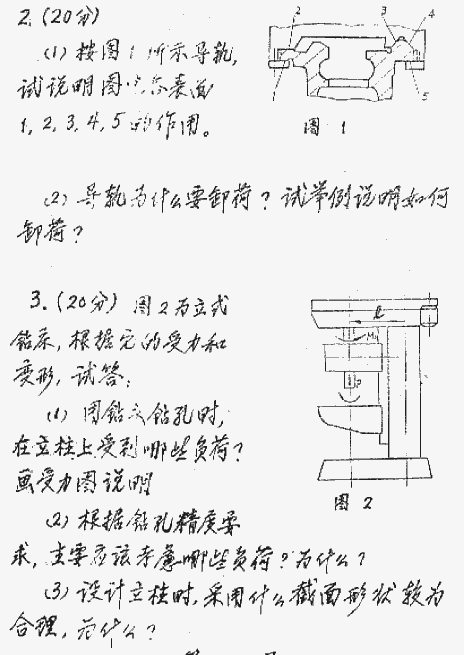 2. (20分)
(1) 按图1所示导轨,
试说明图中各表面
1, 2, 3, 4, 5 的作用。
1
2
3
4
5
图 1
(2) 导轨为什么要卸荷？试举例说明如何
卸荷？
3. (20分) 图2为立式
钻床, 根据它的受力和
变形, 试答:
(1) 用钻头钻孔时,
在立柱上受到哪些负荷？
画受力图说明
l
P
图 2
(2) 根据钻孔精度要
求, 主要应该考虑哪些负荷？为什么？
(3) 设计立柱时, 采用什么截面形状较为
合理, 为什么？